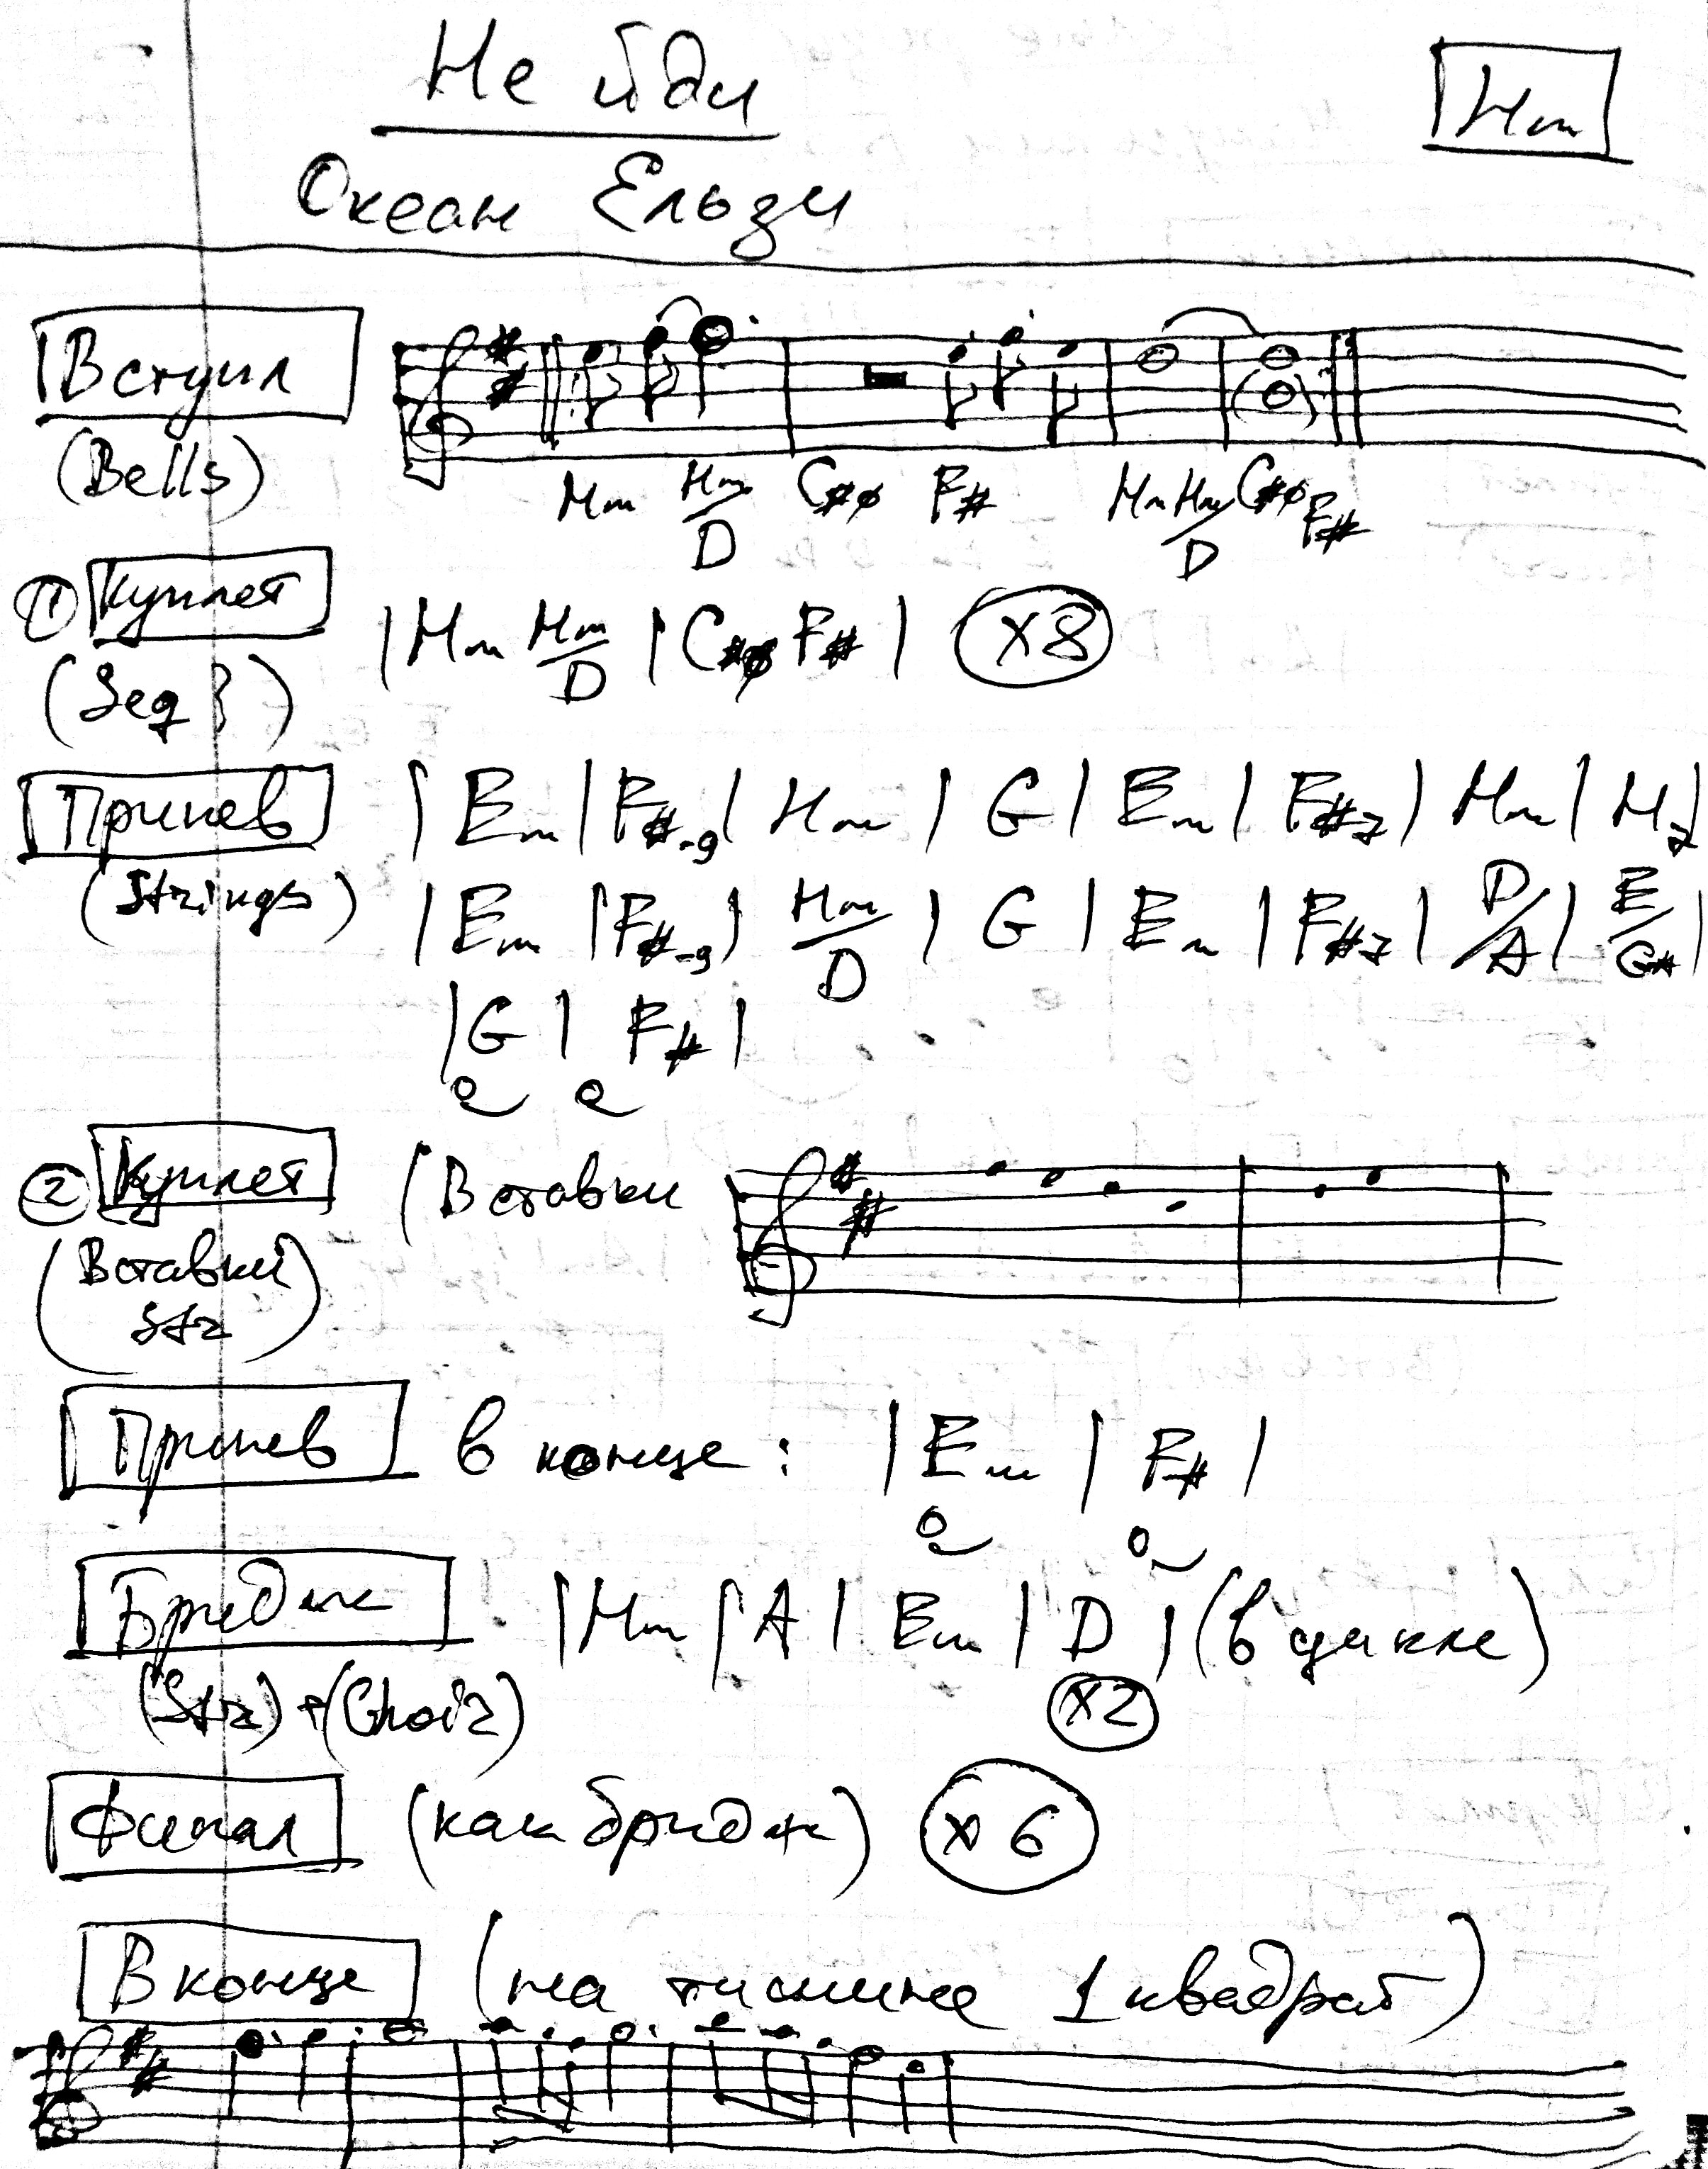 Не йди
Нm
Океан Ельзи
Вступл
(Bells)
Нm Нm/D C#ø F# Нm Нm/D C#ø F#
① Куплет
(Seq 3)
| Нm Нm/D | C#ø F# | x8
Припев
(Strings)
| Em | F#-9 | Нm | G | Em | F#7 | Нm | Н7
| Em | F#-9 | Нm/D | G | Em | F#7 | D/A | E/G# |
| G | F# |
② Куплет
(Вставки
(Вставки
Str)
Припев в конце: | Em | F# |
Бридж | Нm | A | Em | D | (в цикле)
(Str) + (Choir) x2
Финал (как бридж) x6
В конце (на тишине 1 квадрат)